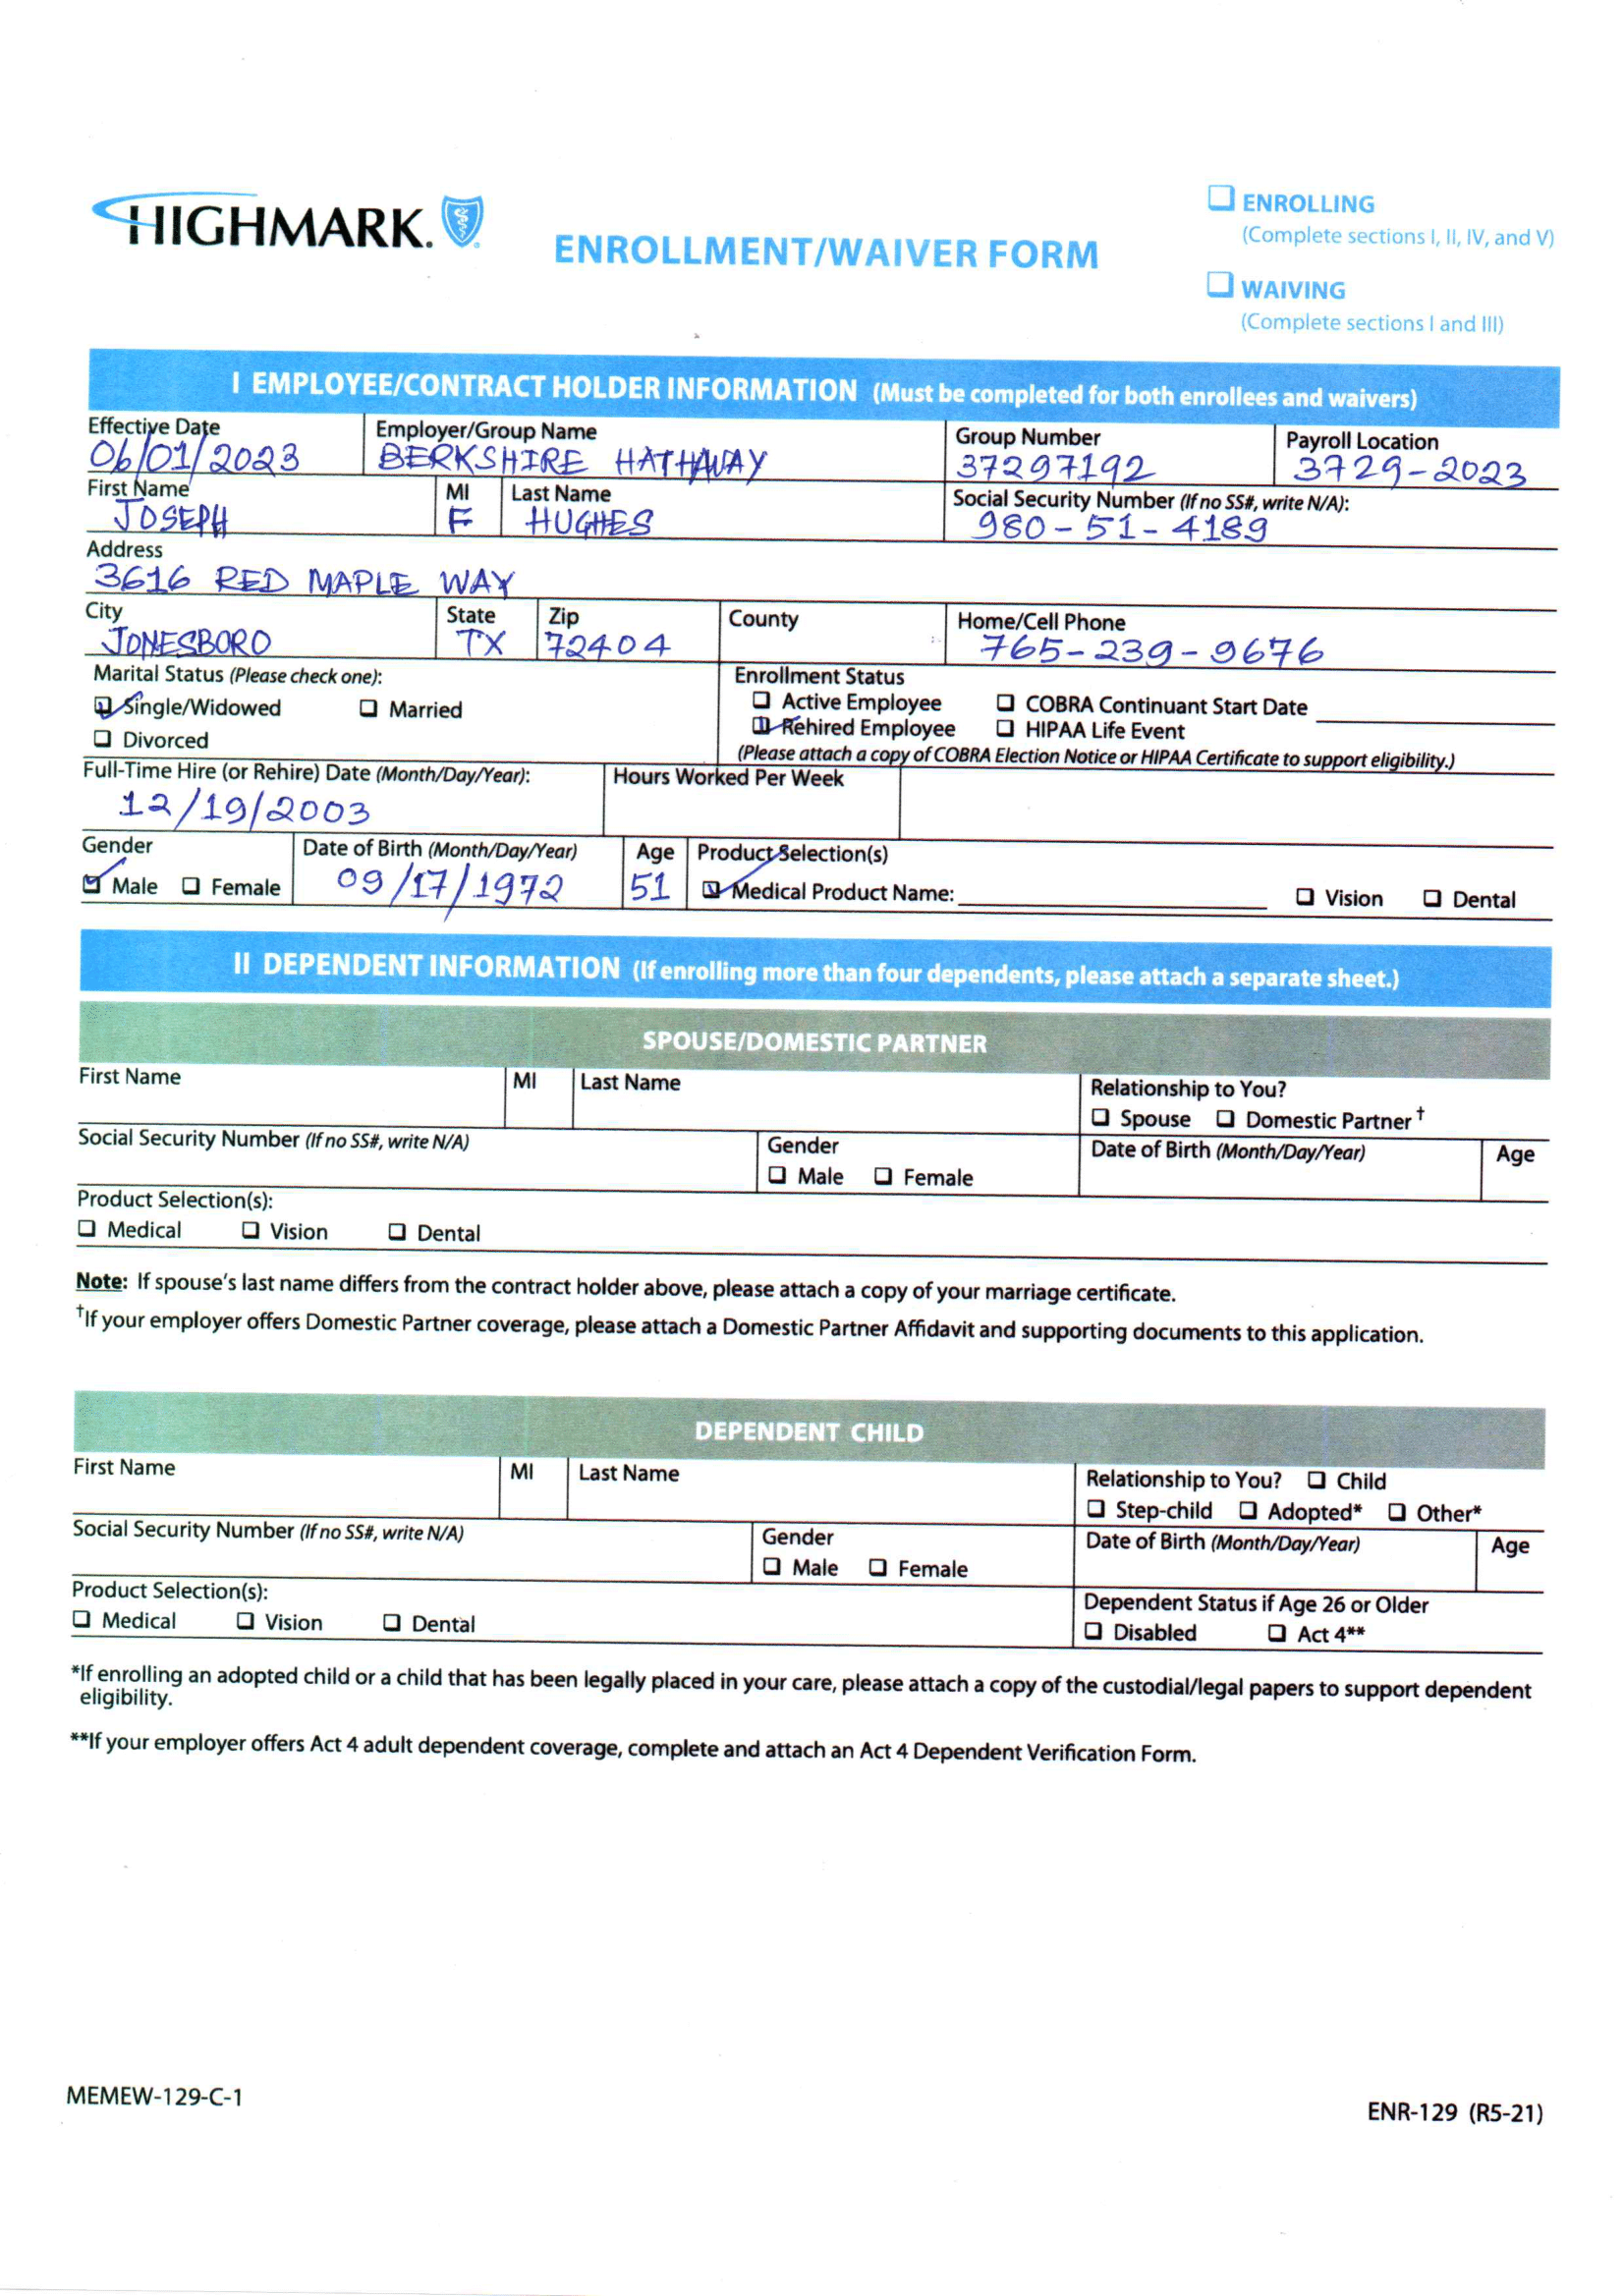 HIGHMARK.
ENROLLMENT/WAIVER FORM
ENROLLING
(Complete sections I, II, IV, and V)
WAIVING
(Complete sections I and III)
I EMPLOYEE/CONTRACT HOLDER INFORMATION (Must be completed for both enrollees and waivers)
Effective Date Employer/Group Name Group Number Payroll Location
06/01/2023 BERKSHIRE HATHAWAY 37297192 3729-2023
First Name MI Last Name Social Security Number (If no SS#, write N/A):
JOSEPH F HUGHES 980-51-4189
Address
3616 RED MAPLE WAY
City State Zip County Home/Cell Phone
JONESBORO TX 72404 765-239-9676
Marital Status (Please check one): Enrollment Status
Single/Widowed Married Active Employee COBRA Continuant Start Date
Divorced Rehired Employee HIPAA Life Event
(Please attach a copy of COBRA Election Notice or HIPAA Certificate to support eligibility.)
Full-Time Hire (or Rehire) Date (Month/Day/Year): Hours Worked Per Week
12/19/2003
Gender Date of Birth (Month/Day/Year) Age Product Selection(s)
Male Female 09/17/1972 51 Medical Product Name: Vision Dental
II DEPENDENT INFORMATION (If enrolling more than four dependents, please attach a separate sheet.)
SPOUSE/DOMESTIC PARTNER
First Name MI Last Name Relationship to You?
Spouse Domestic Partner †
Social Security Number (If no SS#, write N/A) Gender Date of Birth (Month/Day/Year) Age
Male Female
Product Selection(s):
Medical Vision Dental
Note: If spouse's last name differs from the contract holder above, please attach a copy of your marriage certificate.
†If your employer offers Domestic Partner coverage, please attach a Domestic Partner Affidavit and supporting documents to this application.
DEPENDENT CHILD
First Name MI Last Name Relationship to You? Child
Step-child Adopted* Other*
Social Security Number (If no SS#, write N/A) Gender Date of Birth (Month/Day/Year) Age
Male Female
Product Selection(s): Dependent Status if Age 26 or Older
Medical Vision Dental Disabled Act 4**
*If enrolling an adopted child or a child that has been legally placed in your care, please attach a copy of the custodial/legal papers to support dependent
eligibility.
**If your employer offers Act 4 adult dependent coverage, complete and attach an Act 4 Dependent Verification Form.
MEMEW-129-C-1
ENR-129 (R5-21)